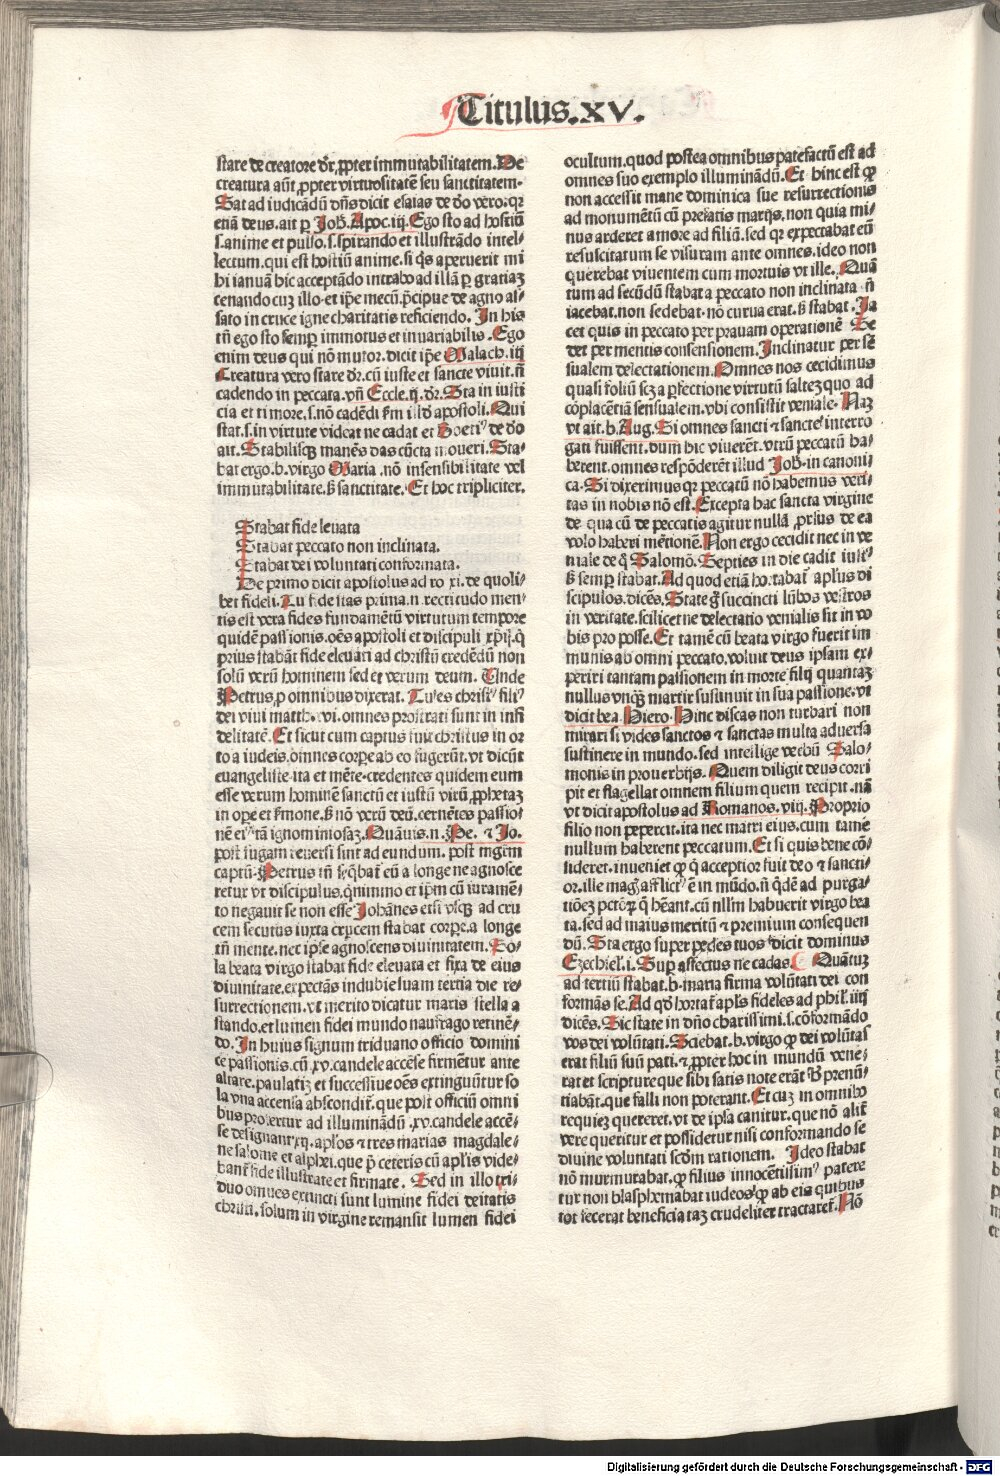 Titulus.xv.
stare de creatore dr̄,ꝓpter immutabilitatem. De
creatura aūt ꝓpter virtuositatē seu sanctitatem.
Sat ad iudicādū dn̄s dicit esaias de do vero:qꝛ
etiā deus.ait ꝑ Joh̄. Apoc.iij. Ego sto ad hostiū
s.anime et pulso.s.spirando et illustrādo intel⸗
lectum.qui est hostiū anime.si q̇s aperuerit mi
hi ianuā hic acceptādo intrabo ad illā ꝑ gratiaꝫ
cenando cuꝫ illo.et ip̄e mecū.p̄cipue de agno as⸗
sato in cruce igne charitatis reficiendo. In his
tn̄ ego sto semꝑ immotus et inuariabilis. Ego
enim deus qui nō mutor.dicit ip̄e Malach.iij
Creatura vero stare dr̄.cū iuste et sancte viuit.n̄
cadendo in peccata.vn̄ Eccle.ij.dr̄. Sta in iusti
cia et timore.s.nō cadēdi km̄ illd apostoli. Qui
stat.s.in virtute videat ne cadat et Boeti⁹ de do
ait. Stabilisqꝫ manēs das cūcta moueri. Sta⸗
bat ergo.b.virgo Maria.nō insensibilitate vel
immutabilitate.s̄ sanctitate. Et hoc tripliciter.
Stabat fide leuata
Stabat peccato non inclinata.
Stabat dei voluntati conformata.
De primo dicit apostolus ad ro xi.de quoli⸗
bet fideli. Tu fide stas prima.n.rectitudo men⸗
tis est vera fides fundamētū virtutum tempore
quidē passionis.oēs apostoli et discipuli xp̄ij.q̇
prius stabāt fide eleuati ad christū credēdū non
solū verū hominem sed et verum deum. Unde
Petrus ꝓ omnibus dixerat. Tu es christ⁹ fili⁹
dei viui matth. vi.omnes prostrati sunt in infi
delitatē. Et sicut cum captus fuit christus in or
to a iudeis.omnes corꝑe ab eo fugerūt.vt dicūt
euangeliste.ita et mēte.credentes quidem eum
esse verum hominē sanctū et iustū virū,ꝓphetaꝫ
in oꝑe et s̄mone.s̄ nō verū deū.cernētes passio⸗
nē ei⁹ tā ignominiosaꝫ. Quāuis.n. Pe. ⁊ Jo.
post fugam reuersi sint ad eundum. post mgr̄m
captū. Petrus tn̄ seq̄bat̄ eū a longe ne agnosce
retur vt discipulus.quinimo et ip̄m cū iuramē⸗
to negauit se non esse Johānes etsi vsqꝫ ad cru
cem secutus iuxta crucem stabat corꝑe.a longe
tn̄ mente.nec ipse agnoscens diuinitatem. So⸗
la beata virgo stabat fide eleuata et fixa de eius
diuinitate.expectās indubie suam tertia die re⸗
surrectionem.vt merito dicatur maris stella a
stando.et lumen fidei mundo naufrago retinē⸗
do. In huius signum triduano officio domini
ce passionis.cū.xv.candele accēse firmētur ante
altare.paulatiꝫ et successiue oēs extinguūtur so
la vna accensa abscondit̄.que post officiū omni
bus profertur ad illuminādū .xv.candele accē⸗
se designant xij.aplōs ⁊ tres marias magdale⸗
ne salome et alphei.que p̄ ceteris cū aplīs vide⸗
bant̄ fide illustrate et firmate. Sed in illo tri⸗
duo omnes extincti sunt lumine fidei deitatis
christi.solum in virgine remansit lumen fidei
ocultum.quod postea omnibus patefactū est ad
omnes suo exemplo illuminādū. Et hinc est ꝙ
non accessit mane dominica sue resurrectionis
ad monumētū cū prefatis marijs.non quia mi⸗
nus arderet amore ad filiū.sed qꝛ expectabat eū
resuscitatum se visuram ante omnes.ideo non
querebat viuentem cum mortuis vt ille. Quā
tum ad secūdū stabat a peccato non inclinata n̄
iacebat.non sedebat.nō curua erat.s̄ stabat. Ja
cet quis in peccato per prauam operationē Se
det per mentis consensionem. Inclinatur per sē
sualem delectationem. Omnes nos cecidimus
quasi foliū scꝫ a ꝑfectione virtutū salteꝫ quo ad
cōplacētiā sensualem.vbi consistit veniale. Naꝫ
vt ait.b. Aug. Si omnes sancti et sancte interro
gati fuissent.dum hic viuerēt.vtrū peccatū ha⸗
berent.omnes respōderēt illud Joh̄.in canoni⸗
ca. Si dixerimus qꝛ peccatū nō habemus veri⸗
tas in nobis nō est. Excepta hac sancta virgine
de qua cū de peccatis agitur nullā ꝓrsus de ea
volo haberi mētionē. Non ergo cecidit nec in ve
niale de q̄ Salomō. Septies in die cadit iust⁹
s̄ semꝑ stabat. Ad quod etiā ho⸗tabat̄ apl̄us di
scipulos.dicēs. State g̊ succincti lūbos vestros
in veritate.scilicet ne delectatio venialis sit in vo
bis pro posse. Et tamē cū beata virgo fuerit im
munis ab omni peccato.voluit deus ipsam ex⸗
periri tantam passionem in morte filij quantaꝫ
nullus vnqꝫ martir sustinuit in sua passione.vt
dicit bea. Hiero. Hinc discas non turbari non
mirari si vides sanctos ⁊ sanctas multa aduersa
sustinere in mundo.sed intellige verbū Salo⸗
monis in prouerbijs. Quem diligit deus corri
pit et flagellat omnem filium quem recipit.nā
vt dicit apostolus ad Romanos.viij. Proprio
filio non pepercit.ita nec matri eius.cum tamē
nullum haberent peccatum. Et si quis bene cō⸗
sideret.inueniet ꝙ q̇ acceptior fuit deo ⁊ sancti⸗
or.ille mag̊ afflict⁹ ē in mūdo.n̄ q̇dē ad purga⸗
tiōeꝫ pctōꝝ q̄ hēant.cū nllm̄ habuerit virgo bea
ta.sed ad maius meritū ⁊ premium consequen
dū. Sta ergo super pedes tuos dicit dominus
Ezechiel̄.i. Sup̄ affectus ne cadas. Quātuꝫ
ad tertiū stabat.b.maria firma volūtati dei con
formās se. Ad qd̄ hortat̄ apl̄s fideles ad phil̄.iiij
dicēs. Sic state in dn̄o charissimi.s.cōformādo
vos dei volūtati. Sciebat.b.virgo ꝙ dei volūtas
erat filiū suū pati.⁊ ꝓpter hoc in mundū vene⸗
rat et scripture que sibi satis note erāt h̄ prenū⸗
tiabāt.que falli non poterant. Et cuꝫ in omnibꝰ
requieꝫ quereret.vt de ipsa canitur.que nō alit̄
vere queritur et possidetur nisi conformando se
diuine voluntati scdm rationem. Ideo stabat
nō murmurabat.ꝙ filius innocētissim⁹ patere
tur non blasphemabat iudeos.ꝙ ab eis quibus
tot fecerat beneficia taꝫ crudeliter tractaret̄. Nō
Digitalisierung gefördert durch die Deutsche Forschungsgemeinschaft - DFG